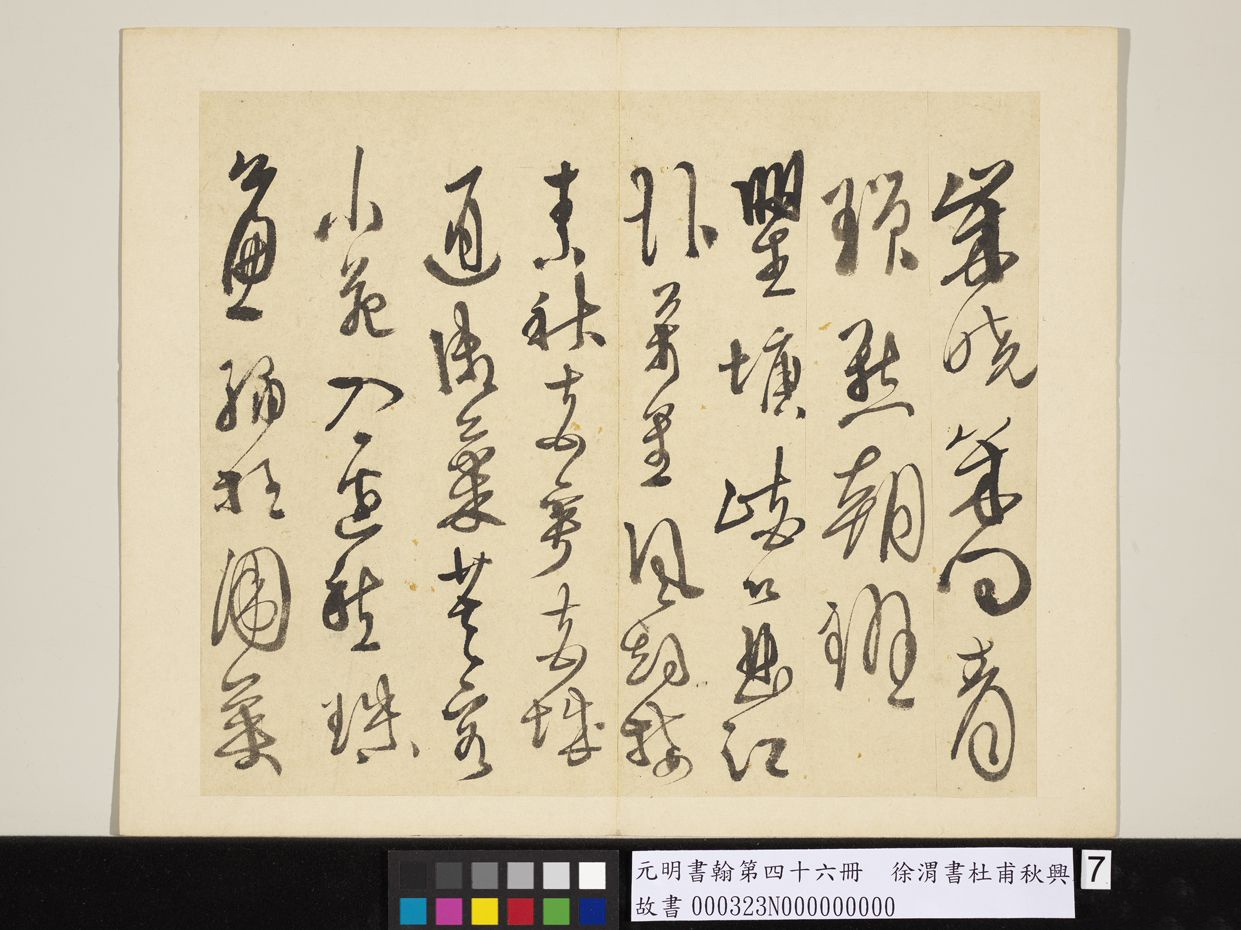 歲晚幾回青
瑣點朝班
瞿塘峽口曲江
頭萬里風煙接
素秋花萼夾城
通御氣芙蓉
小苑入邊愁珠
簾繡柱圍黃
元明書翰第四十六冊 徐渭書杜甫秋興
故書 000323N000000000
7